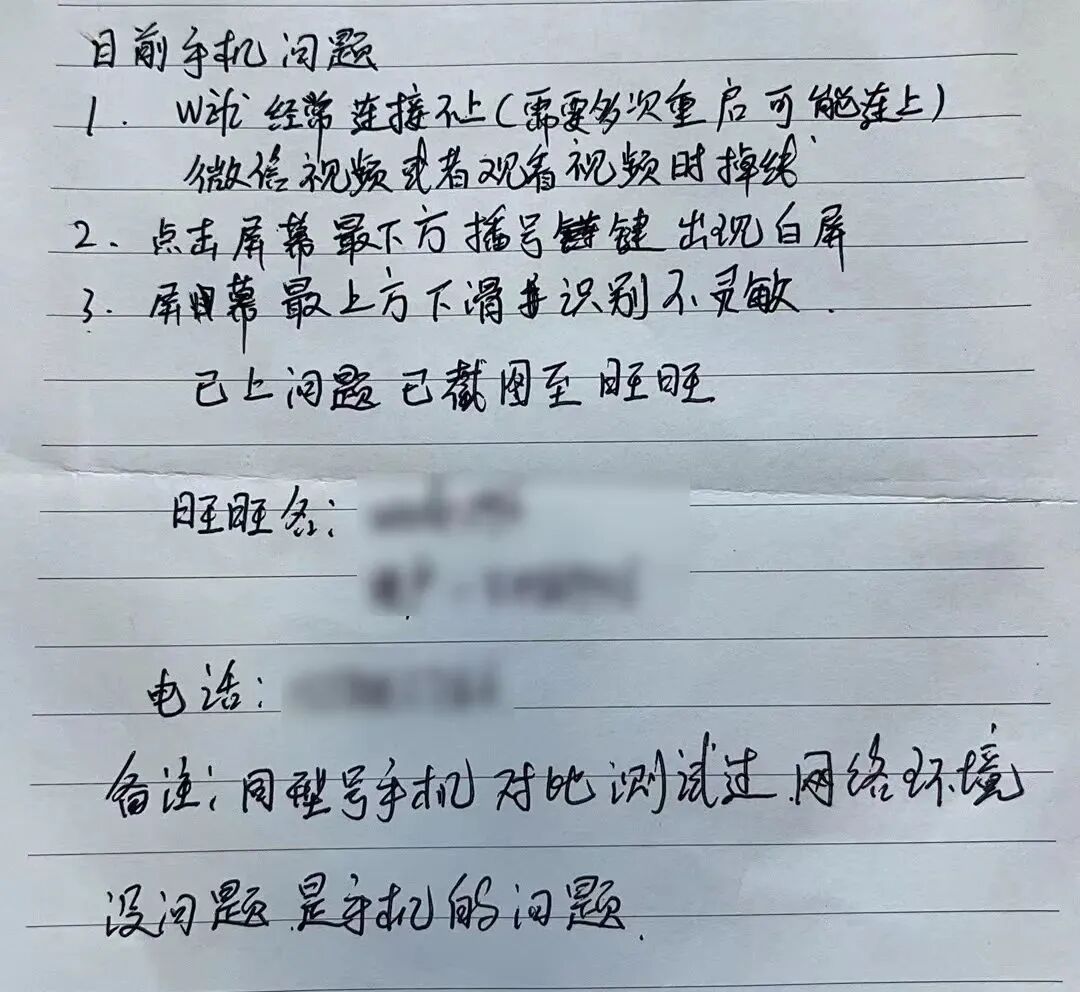 目前手机问题
1. Wifi 经常连接不上(需要多次重启可能连上)
微信视频或者观看视频时掉线
2. 点击屏幕最下方播号键 出现白屏
3. 屏幕最上方下滑识别不灵敏.
已上问题已截图至旺旺
旺旺名:
电话:
备注: 同型号手机对比测试过.网络环境
没问题.是手机的问题.